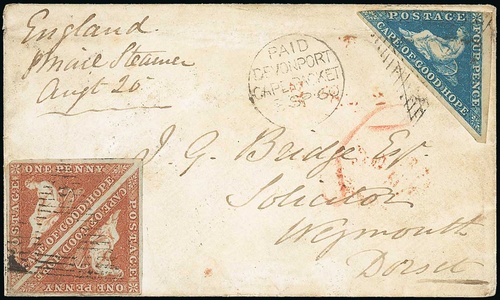 England
Steamer
Augt 25
PAID
DEVONPORT
CAPE PACKET
SP
60
POSTAGE
FOUR PENCE
CAPE OF GOOD HOPE
J. G. Bridge Esq.
Solicitor
Weymouth
Dorset
ONE PENNY
POSTAGE
CAPE OF GOOD HOPE
CAPE OF GOOD HOPE
POSTAGE
ONE PENNY